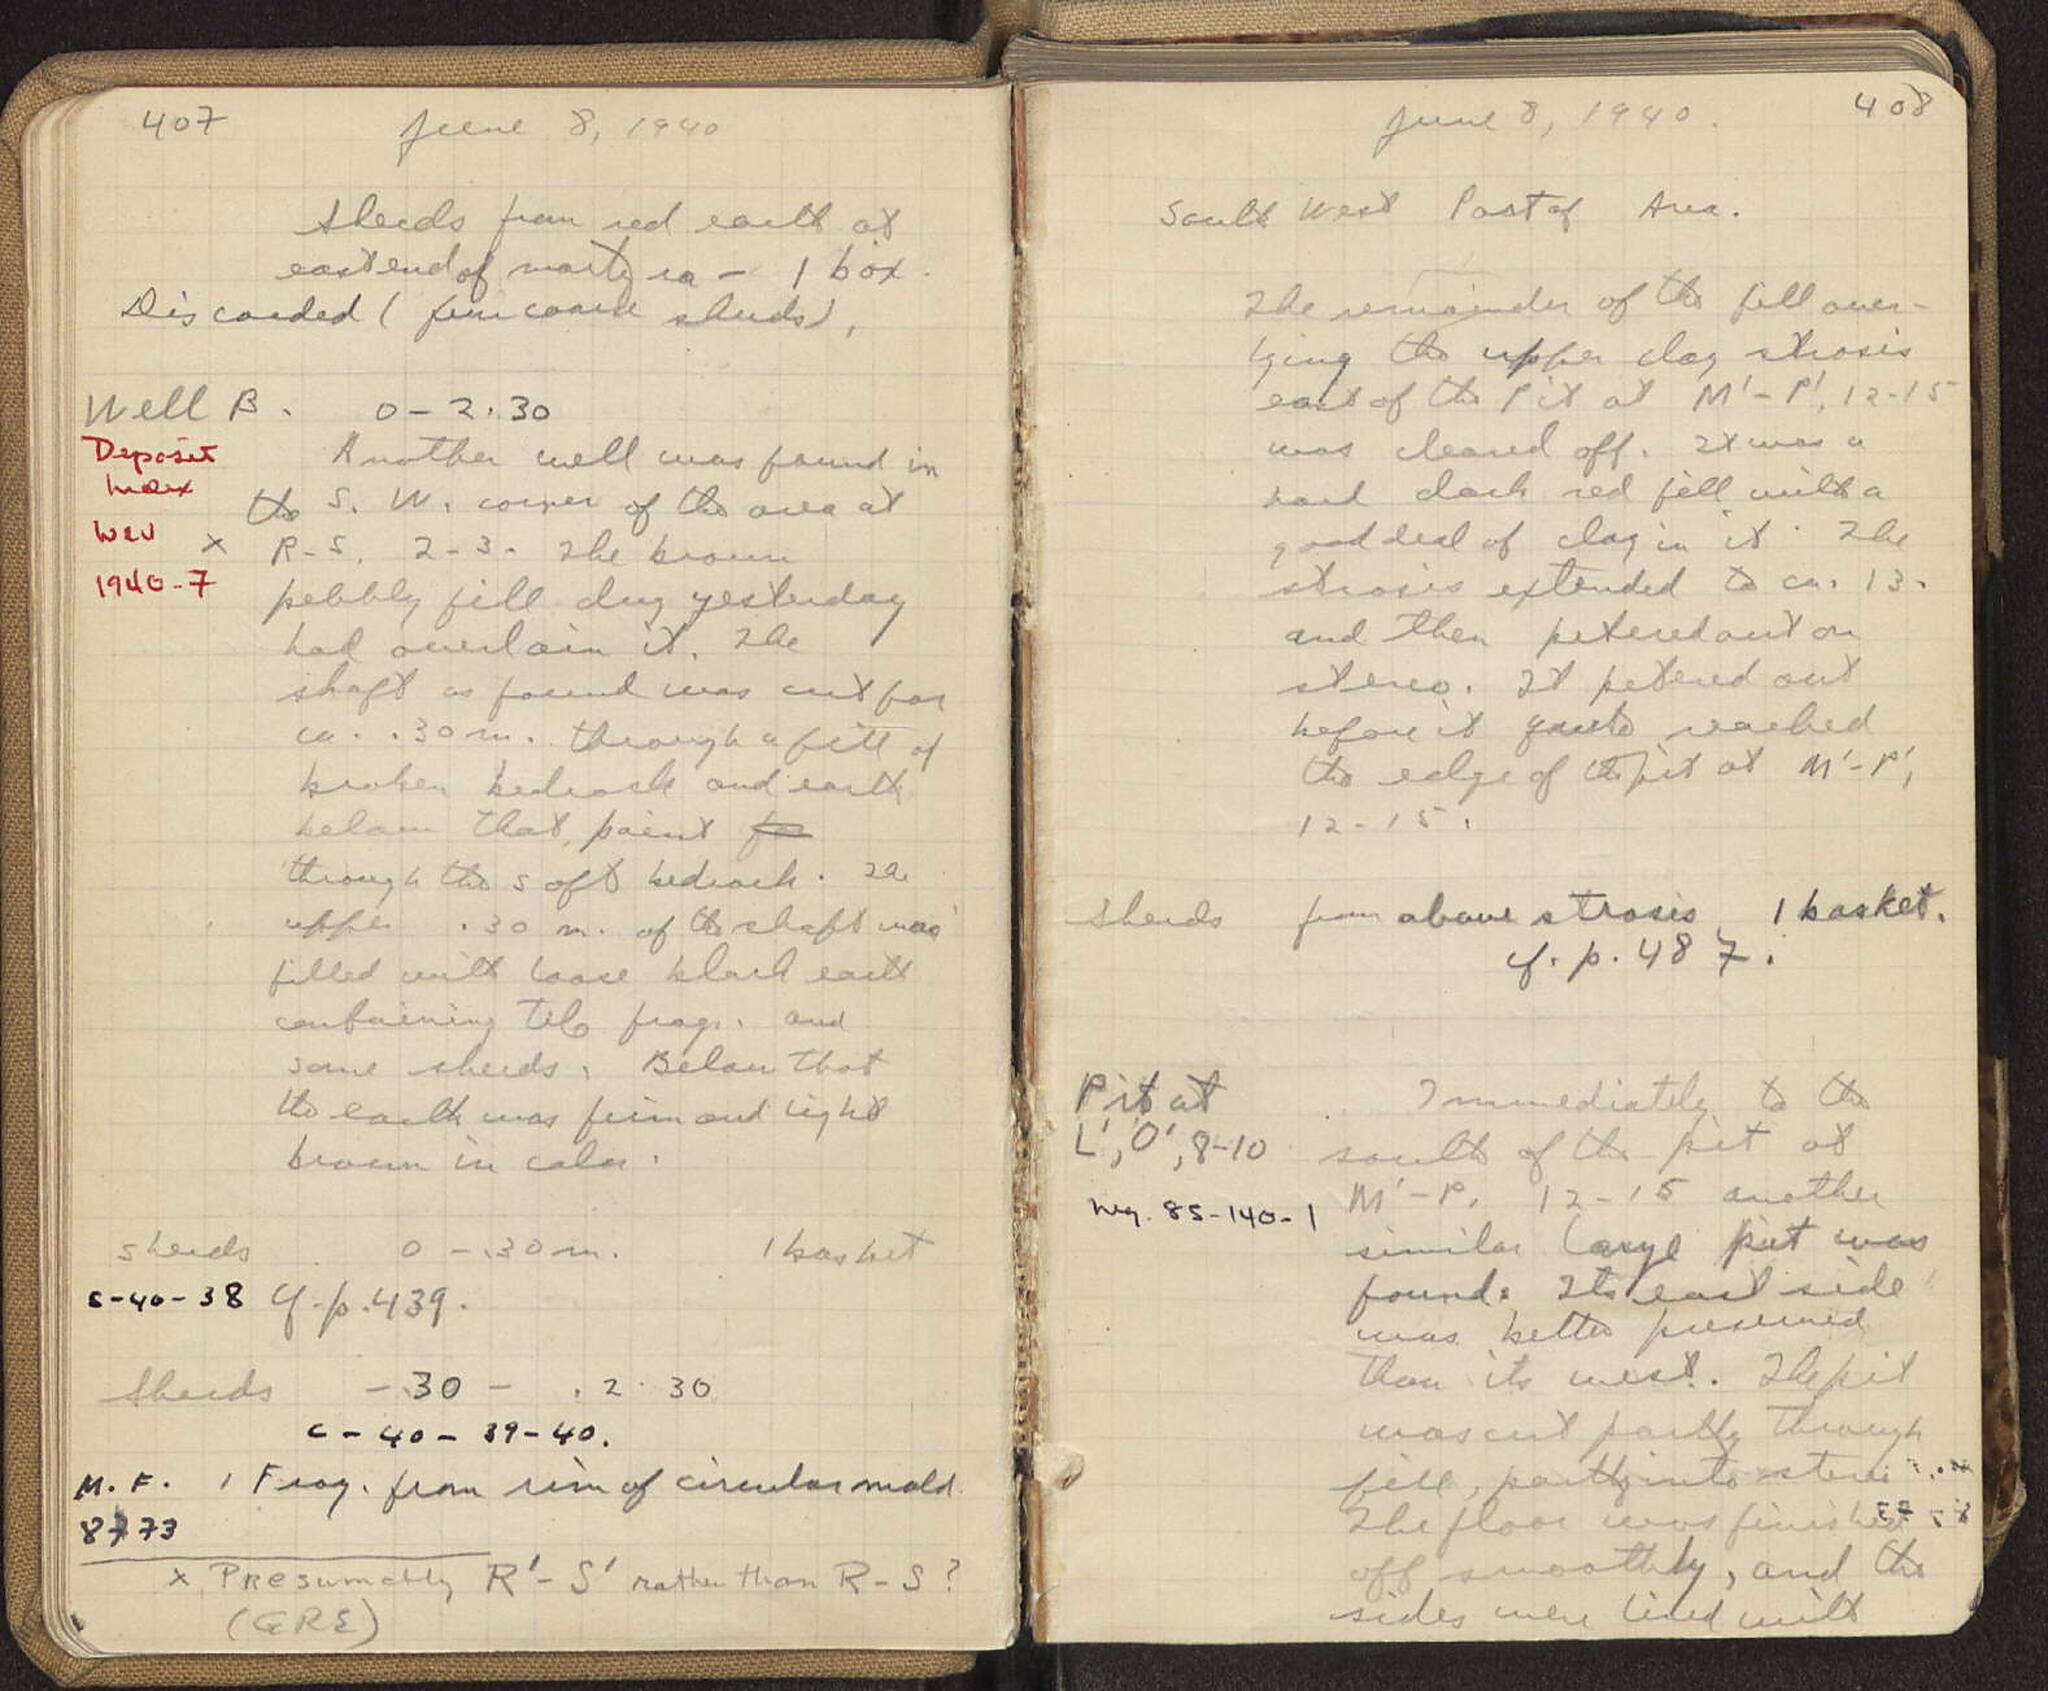 407
June 8, 1940
Sherds from red earth at
east end of martyra - 1 box.
Discarded (few coarse sherds).
Well B. 0-2.30
Deposit
Index
Well
1940-7
Another well was found in
the S. W. corner of the area at
x R-S, 2-3. The brown
pebbly fill dug yesterday
had overlain it. The
shaft as found was cut for
ca. .30 m. through a fill of
broken bedrock and earth
below that point
through the soft bedrock. The
upper .30 m. of the shaft was
filled with loose black earth
containing tile frags. and
some sherds. Below that
the earth was firm and light
brown in color.
sherds 0 - .30 m. 1 basket
C-40-38 Cf. p. 439.
Sherds -.30 - .2.30
C-40-39-40.
M.F. 1 Frag. from rim of circular mold.
8773
x Presumably R'-S' rather than R-S?
(GRE)
408
June 8, 1940.
South West Part of Area.
The remainder of the fill over-
lying the upper clay strosis
east of the Pit at M'-P', 12-15
was cleared off. It was a
hard dark red fill with a
good deal of clay in it. The
strosis extended to ca. 13.
and then petered out on
stereo. It petered out
before it quite reached
the edge of the pit at M'-P',
12-15.
Sherds from above strosis 1 basket.
cf. p. 487.
Pit at
L', O', 8-10
Neg. 85-140-1
Immediately to the
south of the pit at
M'-P, 12-15 another
similar large pit was
found. Its east side
was better preserved
than its west. The pit
was cut partly through
fill, partly into
The floor was finished
off smoothly, and the
sides were lined with